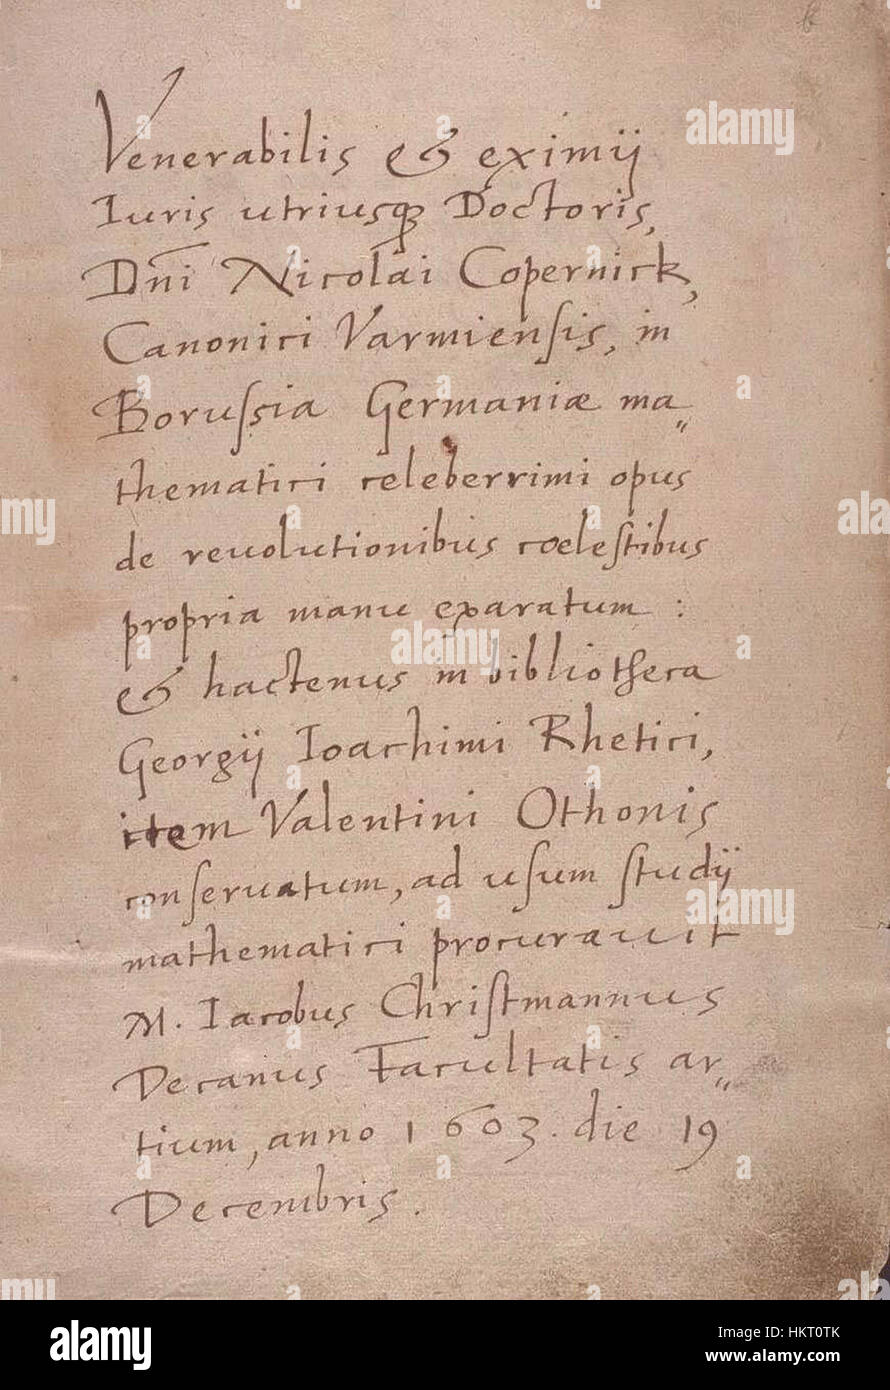 Venerabilis & eximij
Iuris utriusq Doctoris,
Dni Nicolai Copernick,
Canonici Varmiensis, in
Borussia Germaniæ ma„
thematici celeberrimi opus
de reuolutionibus cœlestibus
propria manu exaratum :
& hactenus in bibliotheca
Georgij Ioachimi Rhetici,
item Valentini Othonis
conseruatum, ad usum studij
mathematici procurauit
M. Iacobus Christmannus
Decanus Facultatis ar„
tium, anno 1603. die 19
Decembris.
alamy
alamy
alamy
alamy
alamy
alamy
a
a
a
a
alamy
Image ID: HKT0TK
www.alamy.com